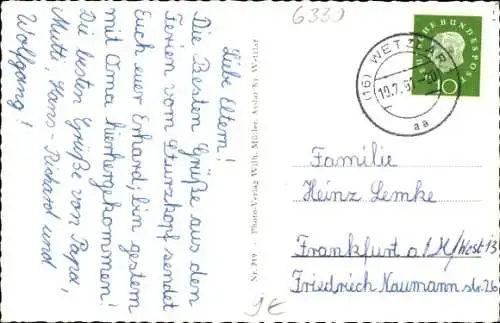 Liebe Eltern!
Die Besten Grüße aus den
Ferien vom Sturzkopf sendet
Euch euer Erhard, bin gestern
mit Oma hierhergekommen!
Die besten Grüße von Papa,
Mutti, Hans-Richard und
Wolfgang!
Nr. 219 - Photo-Verlag Wilh. Müller, Wetzlar
6330
(16) WETZLAR
aa
BUNDESPOST
10
Familie
Heinz Lemke
Frankfurt a/M/West 13
Friedrich Naumann str. 26